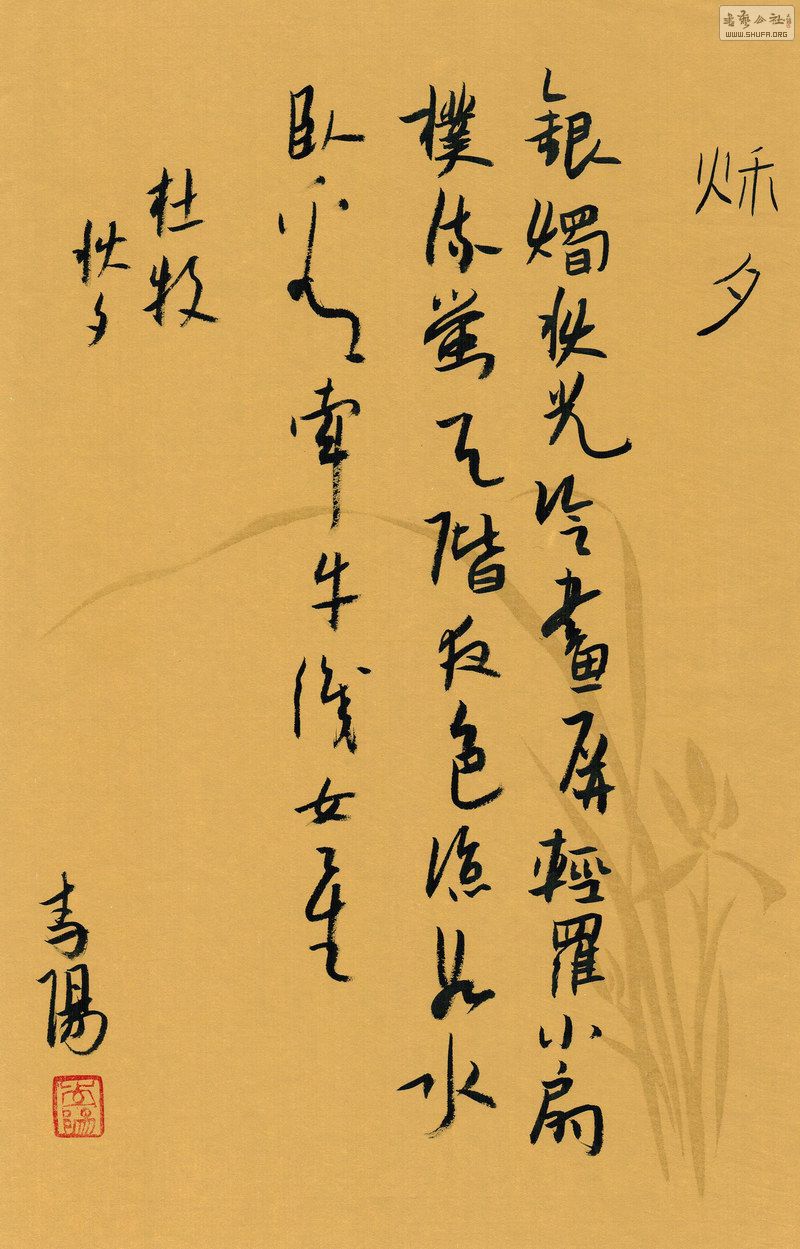 書藝公社
WWW.SHUFA.ORG
秌夕
銀燭秋光冷畫屏輕羅小扇
樸流螢天階夜色涼如水
臥看牽牛織女星
杜牧
秋夕
青陽